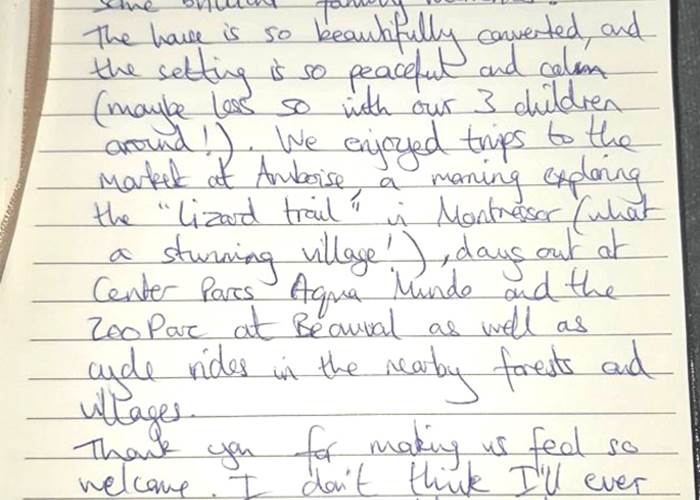 some brilliant family memories.
The house is so beautifully converted, and
the setting is so peaceful and calm
(maybe less so with our 3 children
around!). We enjoyed trips to the
market at Amboise, a morning exploring
the "lizard trail" in Montresor (what
a stunning village!), days out at
Center Parcs Aqua Mundo and the
ZooParc at Beauval as well as
cycle rides in the nearby forests and
villages.
Thank you for making us feel so
welcome. I don't think I'll ever